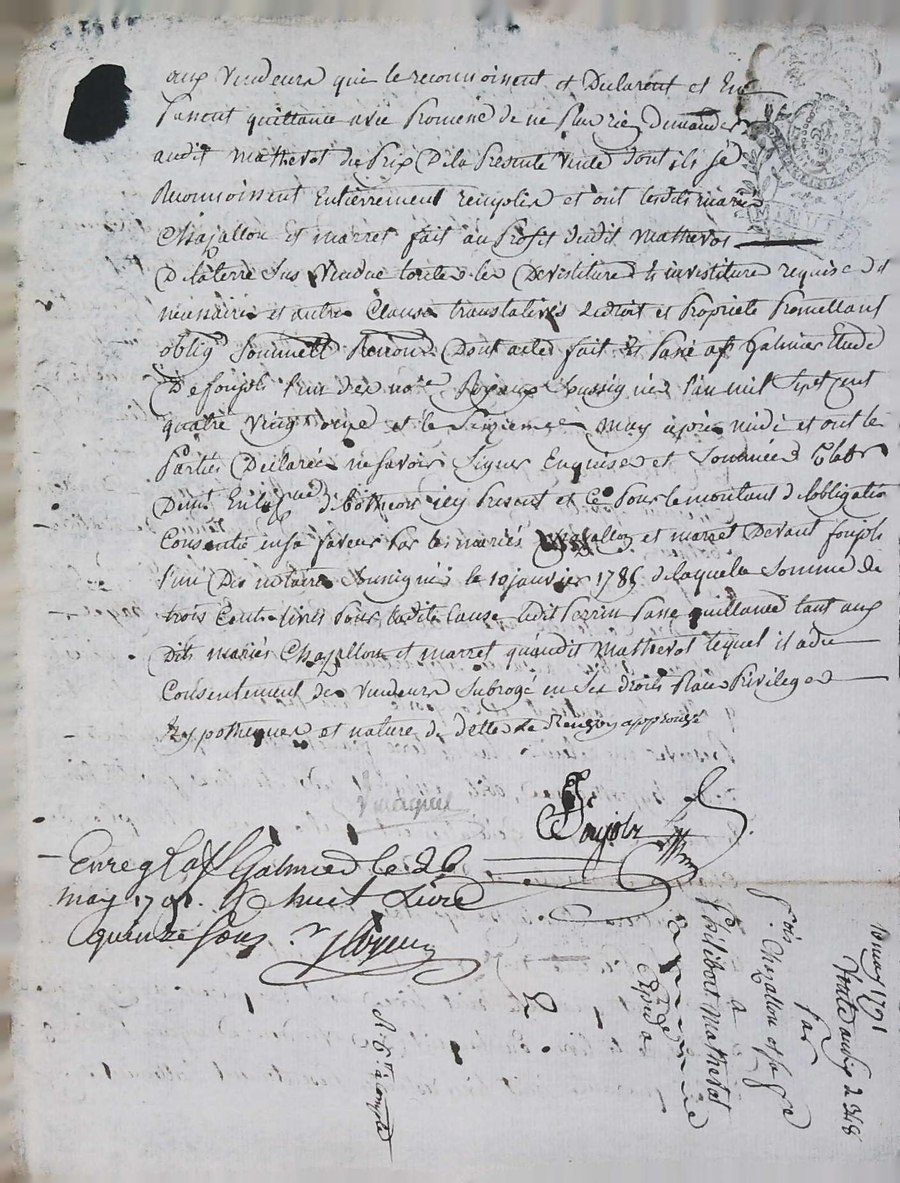 aux vendeurs qui le reconnoissent et Declarent et En
Passent quittance avec Promesse de ne Plus rien demander
audit Mathevot du Prix De la Presente vente dont ils se
Reconnoissent Entierrement remplis et ont lesdits mariés
Chazallon et marret fait au Profit dudit Mathevot
De la terre sus vendue toutes les Devestitures et investitures requises et
necessaires et autres Clauses translatives de droit et Propriete Promettant
oblig. Soumett. Renon. Dont acte fait et Passé a St Galmier Etude
De foujols l'un des nores Royaux soussignés l'an mil sept cent
quatre vingt onze et le seizieme may après midi et ont les
Parties Déclarées ne savoir signer Enquises et Sommées
ici Present et Ce Pour le montant de lobligation
Consentie en sa faveur Par les mariés Chazallon et marret Devant foujols
l'un Des notaires soussignés le 10 janvier 1786 de laquelle Somme de
trois Cent livres Pour ladite Cause ledit Perrin Passe quittance tant aux
Dits mariés Chazallon et marret qu'audit Mathevot lequel il a du
Consentement des Vendeurs Subrogé en ses droits Place Privileges
hypotheques et nature de dette
Enreg. a St Galmier le 26
may 1791. R. huit Livres
quinze sous.
16 may 1791
Vente au prix de 348
Par
fois Chazallon et sa fe
a
Mathevot
R. 6tt a compte